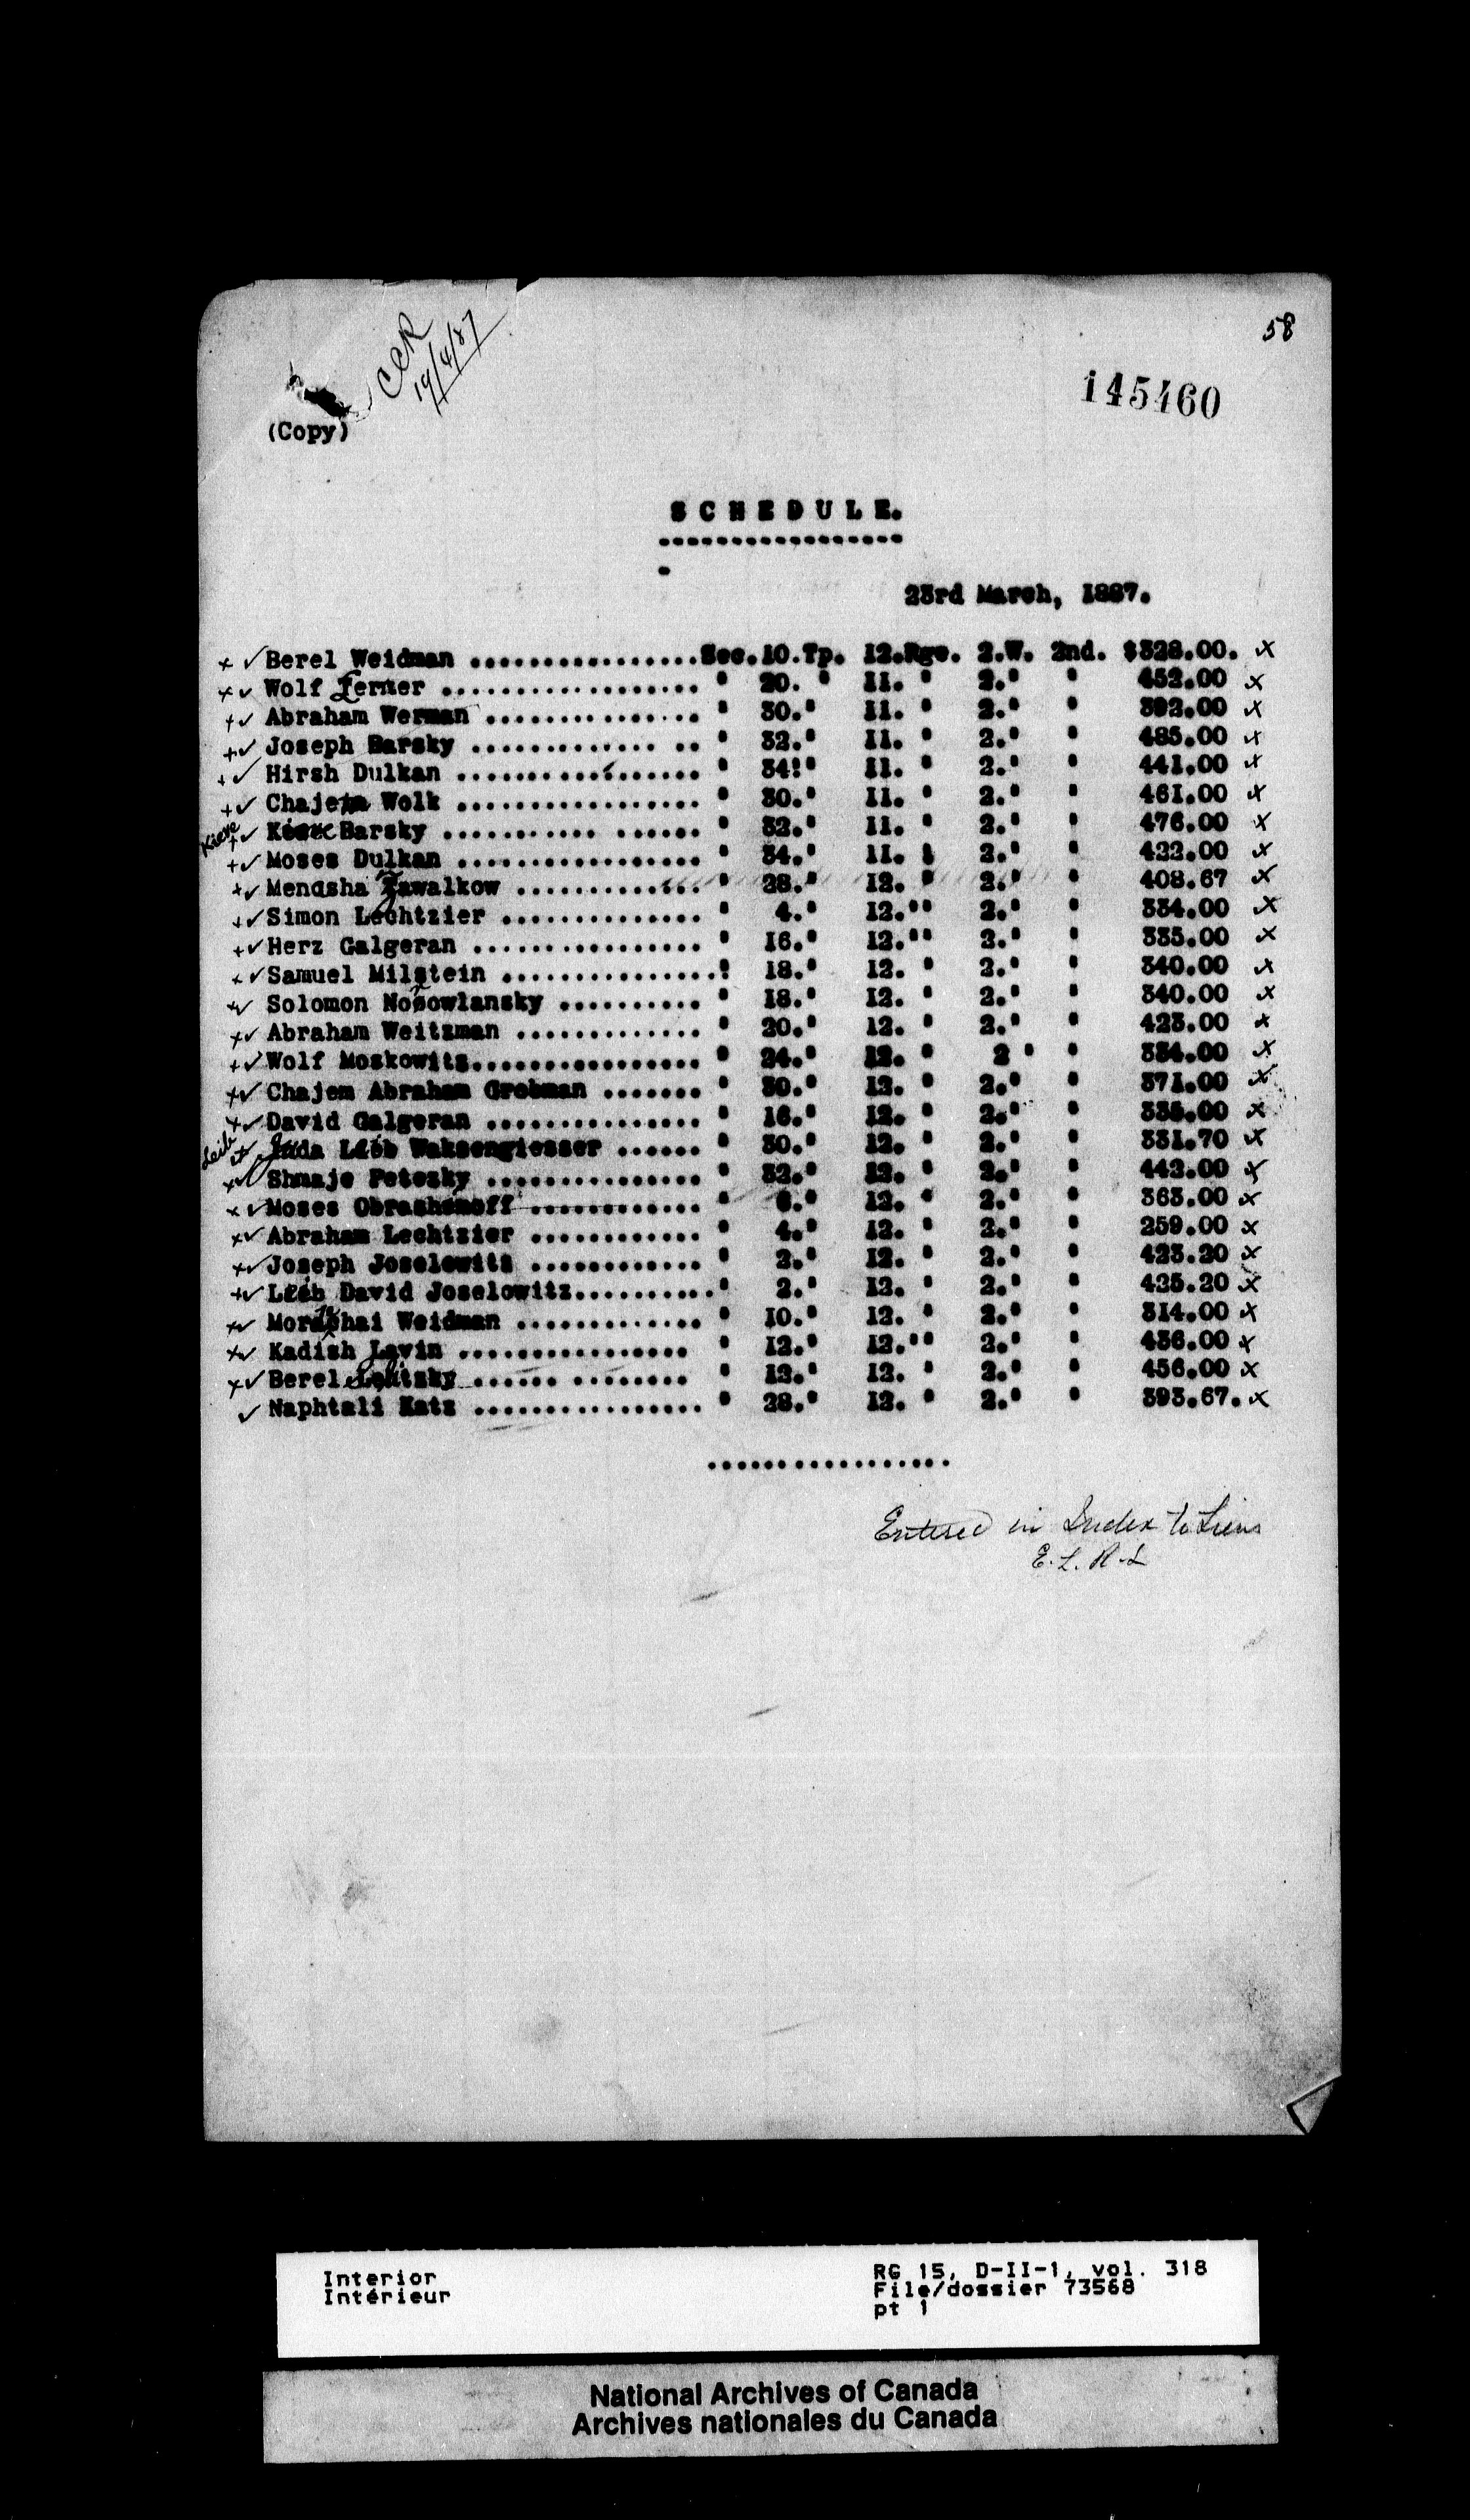 58
CCR
19/4/87
145460
(Copy)
SCHEDULE.
.................
23rd March, 1887.
x ✓ Berel Weidman ................Sec.10.Tp. 12.Rge. 2.W. 2nd. $328.00. x
x ✓ Wolf Lerner .................. " 20. " 11. " 2." " 452.00 x
x ✓ Abraham Werman ............... " 30." 11. " 2." " 392.00 x
x ✓ Joseph Barsky ............. .. " 32." 11. " 2." " 485.00 x
x ✓ Hirsh Dulkan ................. " 34!" 11. " 2." " 441.00 x
x ✓ Chajem Wolk ................. " 30." 11. " 2." " 461.00 x
Kieve x ✓ Barsky ........... ...... " 32." 11. " 2." " 476.00 x
x ✓ Moses Dulkan ................. " 34." 11. " 2." " 422.00 x
x ✓ Mendsha Zawalkow ............. " 28." 12. " 2." " 408.67 x
x ✓ Simon Lechtzier .............. " 4." 12."" 2." " 334.00 x
x ✓ Herz Galgeran ................ " 16." 12."" 2." " 335.00 x
x ✓ Samuel Milstein ...............! 18." 12. " 2." " 340.00 x
x ✓ Solomon Nosowlansky .......... " 18." 12. " 2." " 340.00 x
x ✓ Abraham Weitzman ............. " 20." 12. " 2." " 423.00 x
x ✓ Wolf Moskowitz................ " 24." 12. " 2 " " 334.00 x
x ✓ Chajem Abraham Grobman ....... " 30." 12. " 2." " 371.00 x
x ✓ David Galgeran ............... " 16." 12. " 2." " 335.00 x
Leib x ✓ Juda Lieb Waksengiesser ...... " 30." 12. " 2." " 331.70 x
x ✓ Shmaje Petesky ............... " 32." 12. " 2." " 442.00 x
x ✓ Moses Obrashenoff ............ " 6." 12. " 2." " 363.00 x
x ✓ Abraham Lechtzier ............ " 4." 12. " 2." " 259.00 x
x ✓ Joseph Joselowitz ............ " 2." 12. " 2." " 423.20 x
x ✓ Leib David Joselowitz.......... " 2." 12. " 2." " 425.20 x
x ✓ Mordchai Weidman ............. " 10." 12. " 2." " 314.00 x
x ✓ Kadish Lavin ................ " 12." 12."" 2." " 436.00 x
x ✓ Berel ...... ........ " 12." 12. " 2." " 456.00 x
✓ Naphtali Katz ................ " 28." 12. " 2." " 393.67. x
.................
Entered in Index to Liens
E. L. R-L
Interior
Intérieur
RG 15, D-II-1, vol. 318
File/dossier 73568
pt 1
National Archives of Canada
Archives nationales du Canada